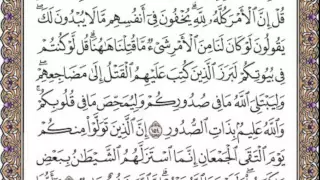 قُلْ إِنَّ ٱلْأَمْرَ كُلَّهُۥ لِلَّهِ ۗ يُخْفُونَ فِىٓ أَنفُسِهِم مَّا لَا يُبْدُونَ لَكَ ۖ
يَقُولُونَ لَوْ كَانَ لَنَا مِنَ ٱلْأَمْرِ شَىْءٌ مَّا قُتِلْنَا هَٰهُنَا ۗ قُل لَّوْ كُنتُمْ
فِى بُيُوتِكُمْ لَبَرَزَ ٱلَّذِينَ كُتِبَ عَلَيْهِمُ ٱلْقَتْلُ إِلَىٰ مَضَاجِعِهِمْ ۖ
وَلِيَبْتَلِىَ ٱللَّهُ مَا فِى صُدُورِكُمْ وَلِيُمَحِّصَ مَا فِى قُلُوبِكُمْ ۗ
وَٱللَّهُ عَلِيمٌۢ بِذَاتِ ٱلصُّدُورِ ١٥٤ إِنَّ ٱلَّذِينَ تَوَلَّوْا۟ مِنكُمْ
يَوْمَ ٱلْتَقَى ٱلْجَمْعَانِ إِنَّمَا ٱسْتَزَلَّهُمُ ٱلشَّيْطَٰنُ بِبَعْضِ